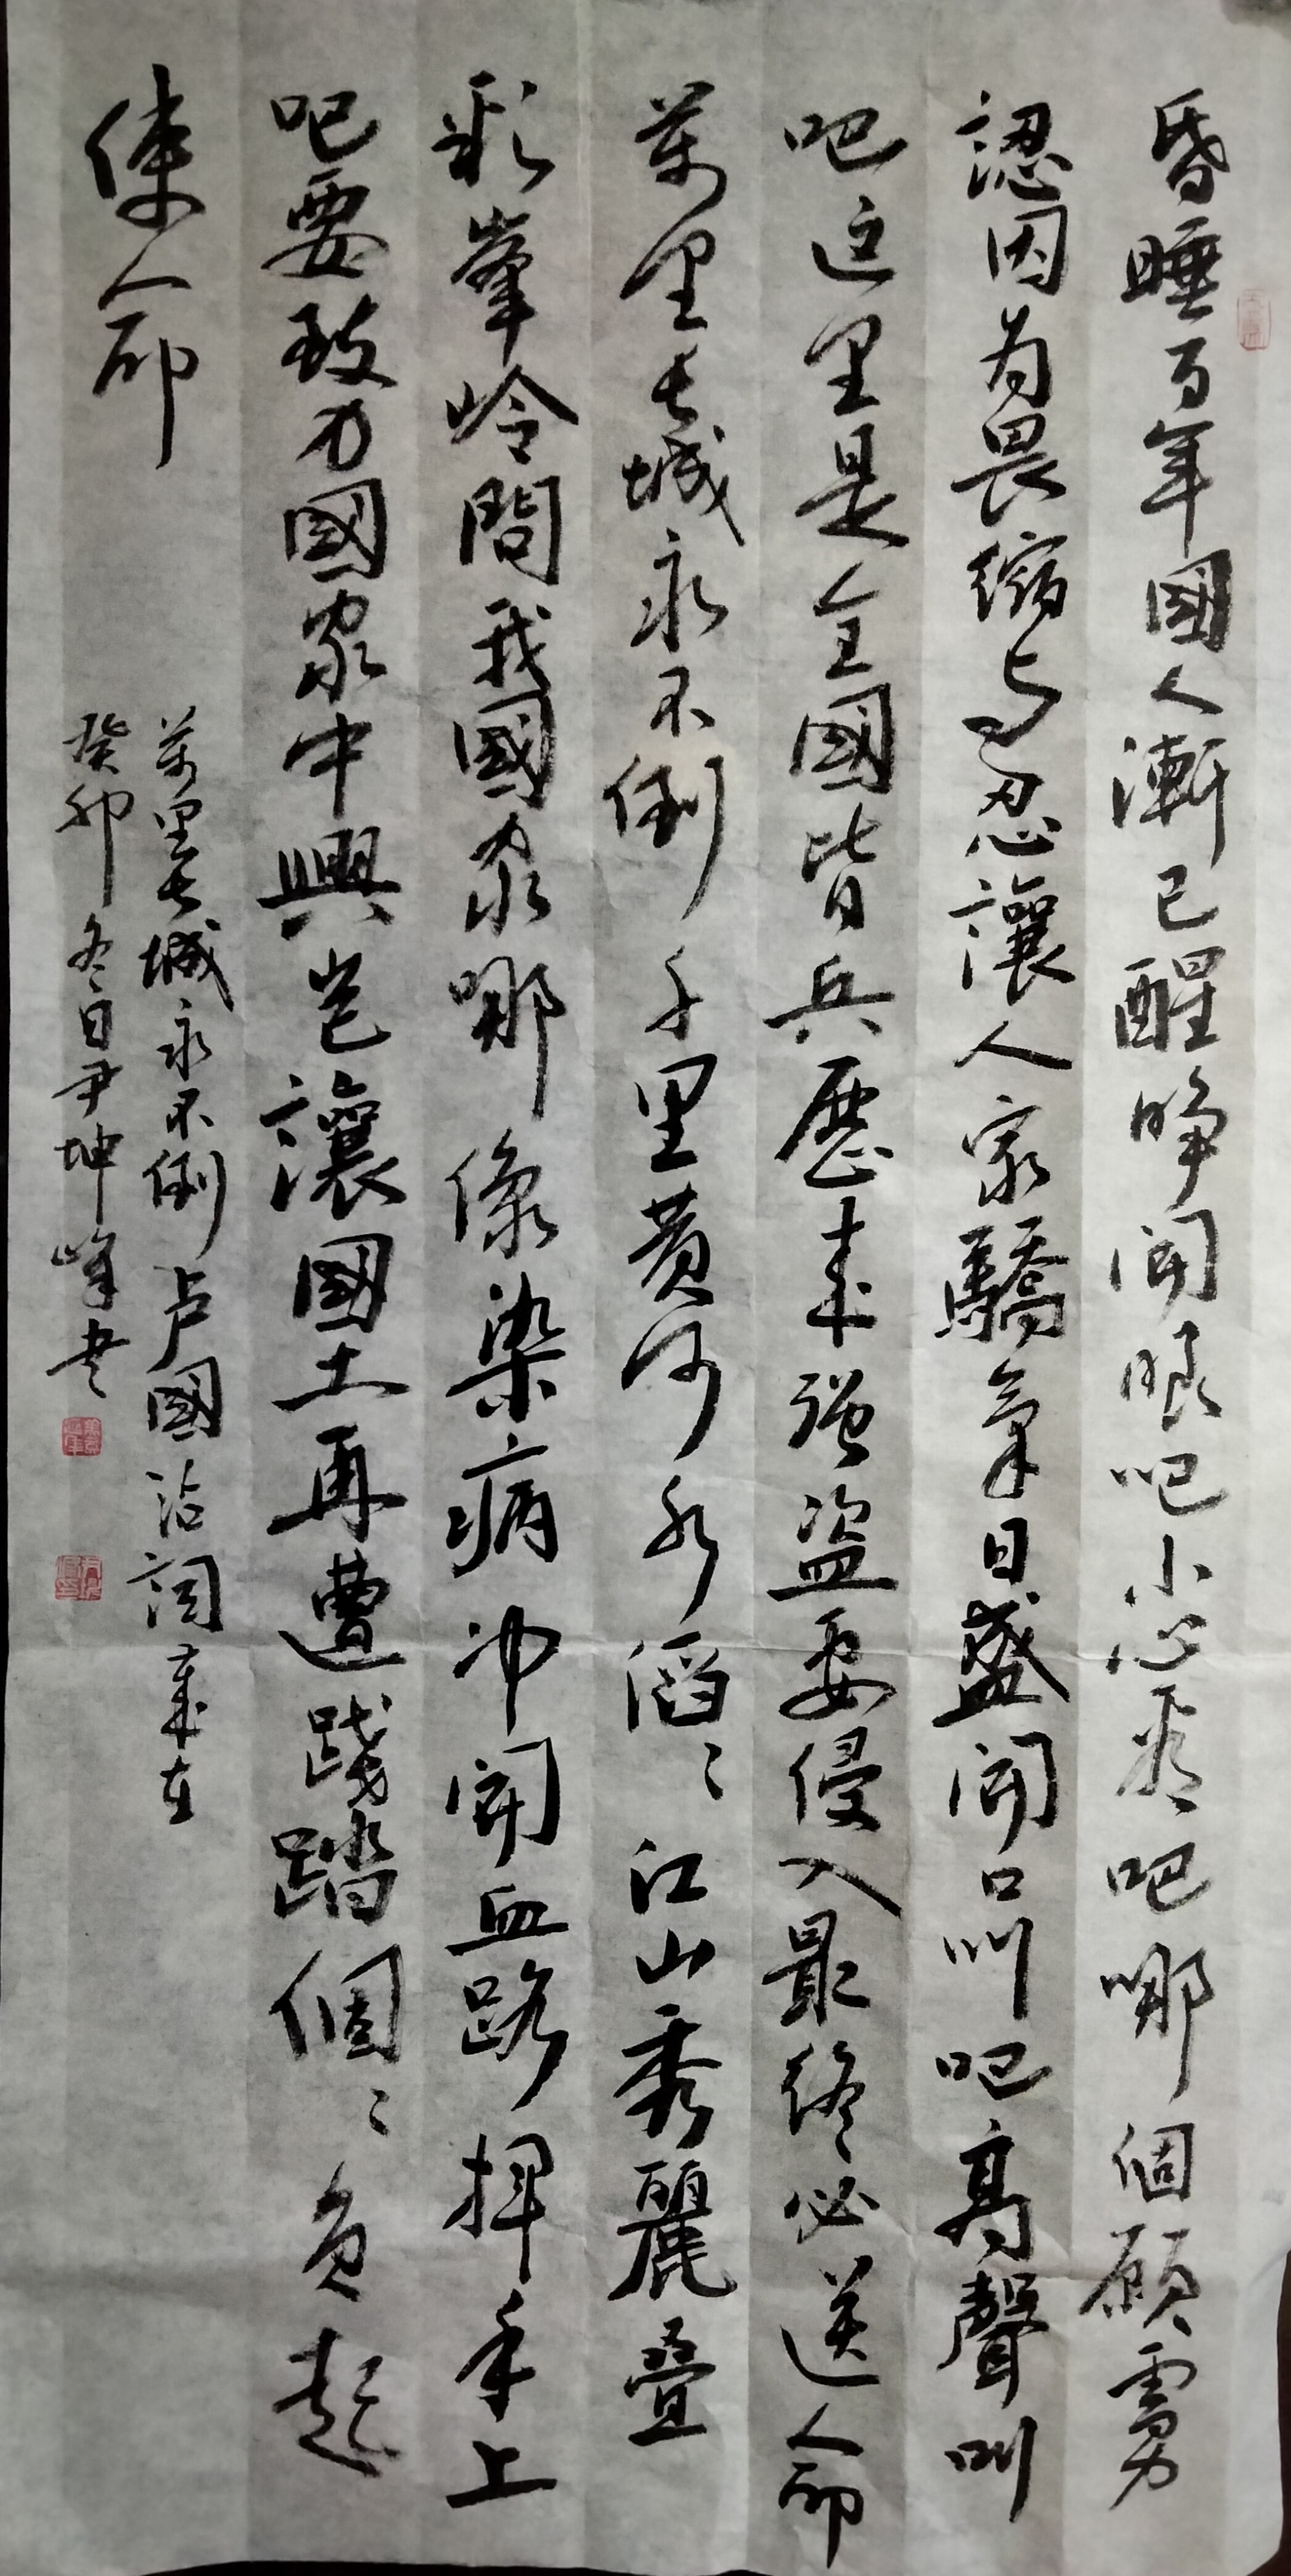 昏睡百年國人漸已醒睁開眼吧小心看吧哪個願雩男
認因为畏缩与忍讓人家驕氣日盛開口叫吧高聲叫
吧这里是全國皆兵歷来强盗要侵入最终必送人命
萬里长城永不倒千里黄河水滔〻江山秀麗叠
彩峯岭問我國家哪像染病冲開血路挥手上
吧要致力國家中興岂讓國土再遭踐踏個〻負起
使命
萬里长城永不倒卢國沾詞
癸卯冬日尹坤峰书